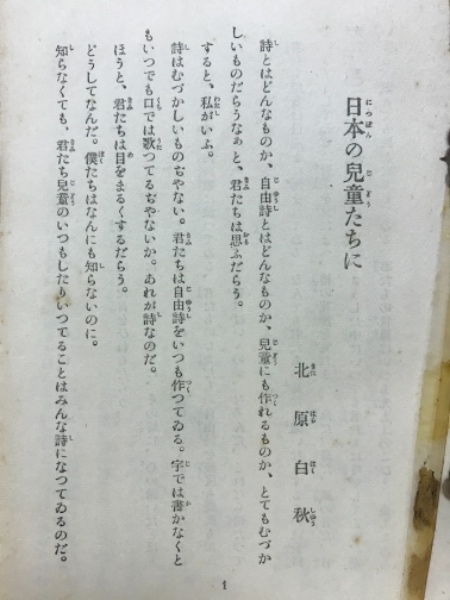 日本の兒童たちに
北原白秋
詩とはどんなものか、自由詩とはどんなものか、兒童にも作れるものか、とてもむづか
しいものだらうなぁと、君たちは思ふだらう。
すると、私がいふ。
詩はむづかしいものぢやない。君たちは自由詩をいつも作つてゐる。字では書かなくと
もいつでも口では歌つてるぢやないか。あれが詩なのだ。
ほうと、君たちは目をまるくするだらう。
どうしてなんだ。僕たちはなんにも知らないのに。
知らなくても、君たち兒童のいつもしたりいつてることはみんな詩になつてゐるのだ。
1